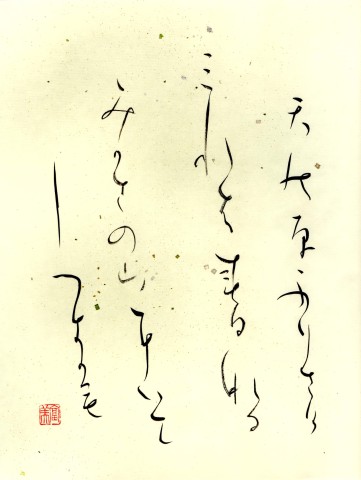 天の原ふりさけ
みれは春日なる
みかさの山にいて
しつきかも